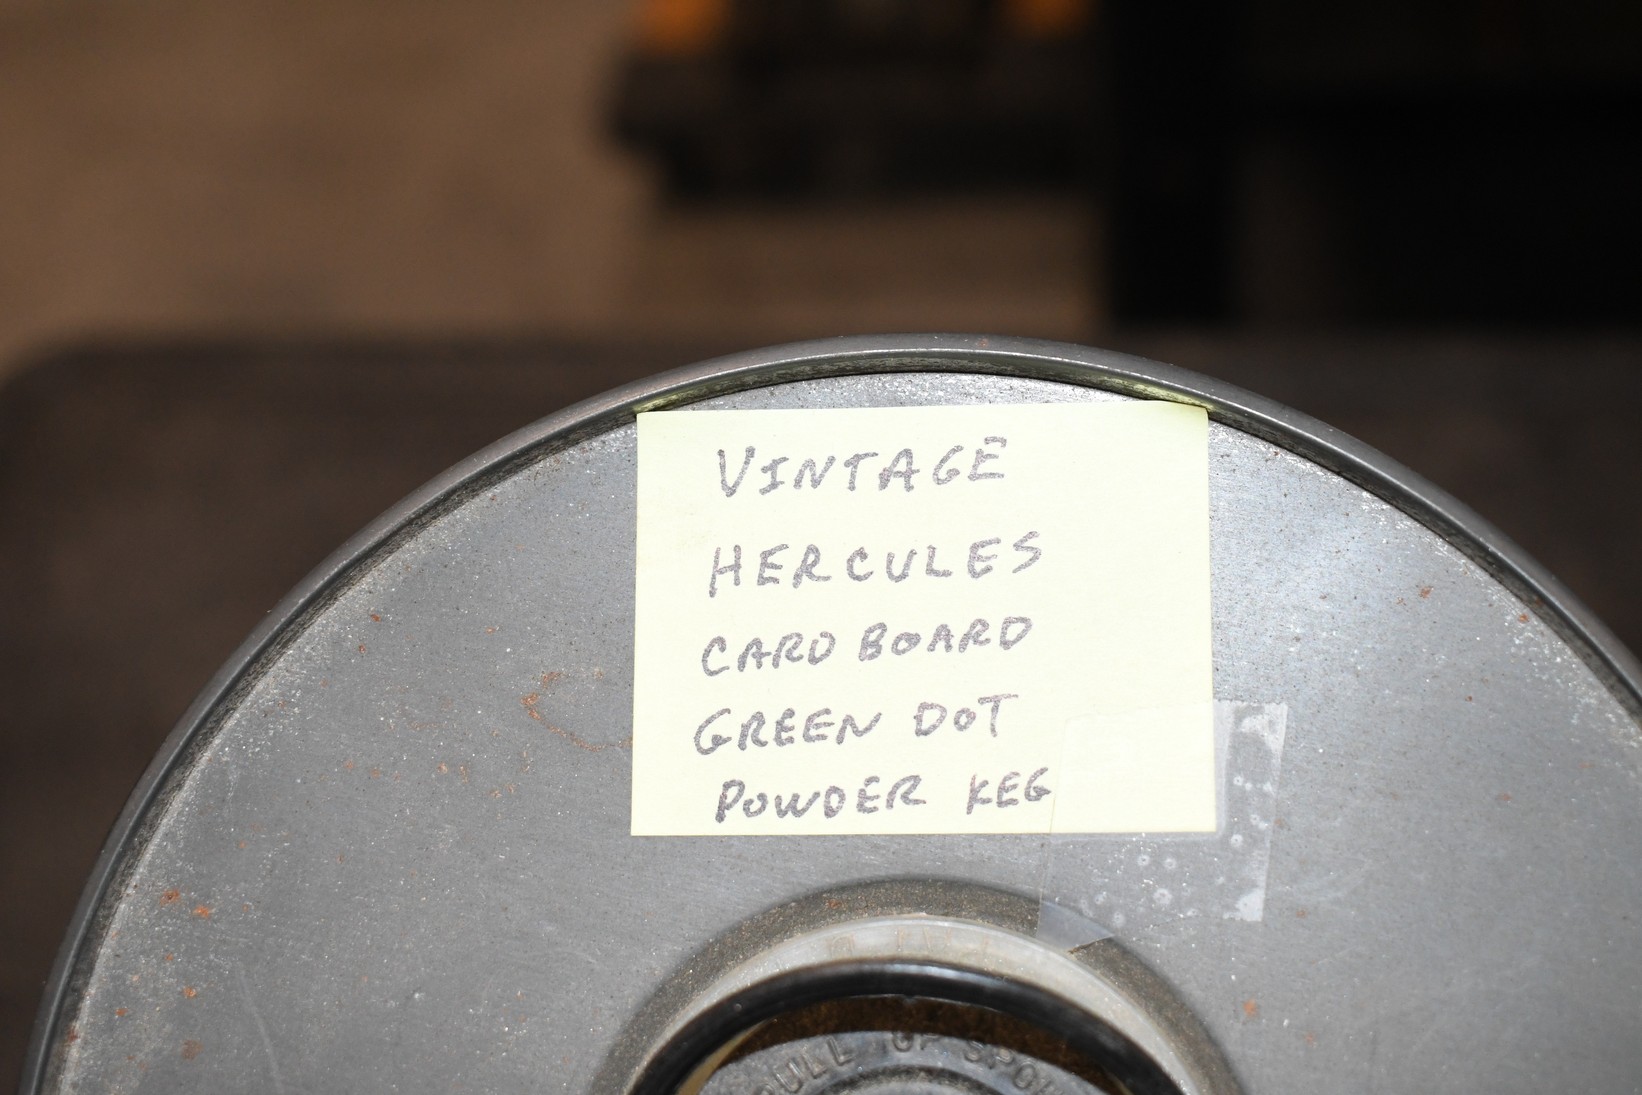 VINTAGE
HERCULES
CARD BOARD
GREEN DOT
POWDER KEG
PULL UP